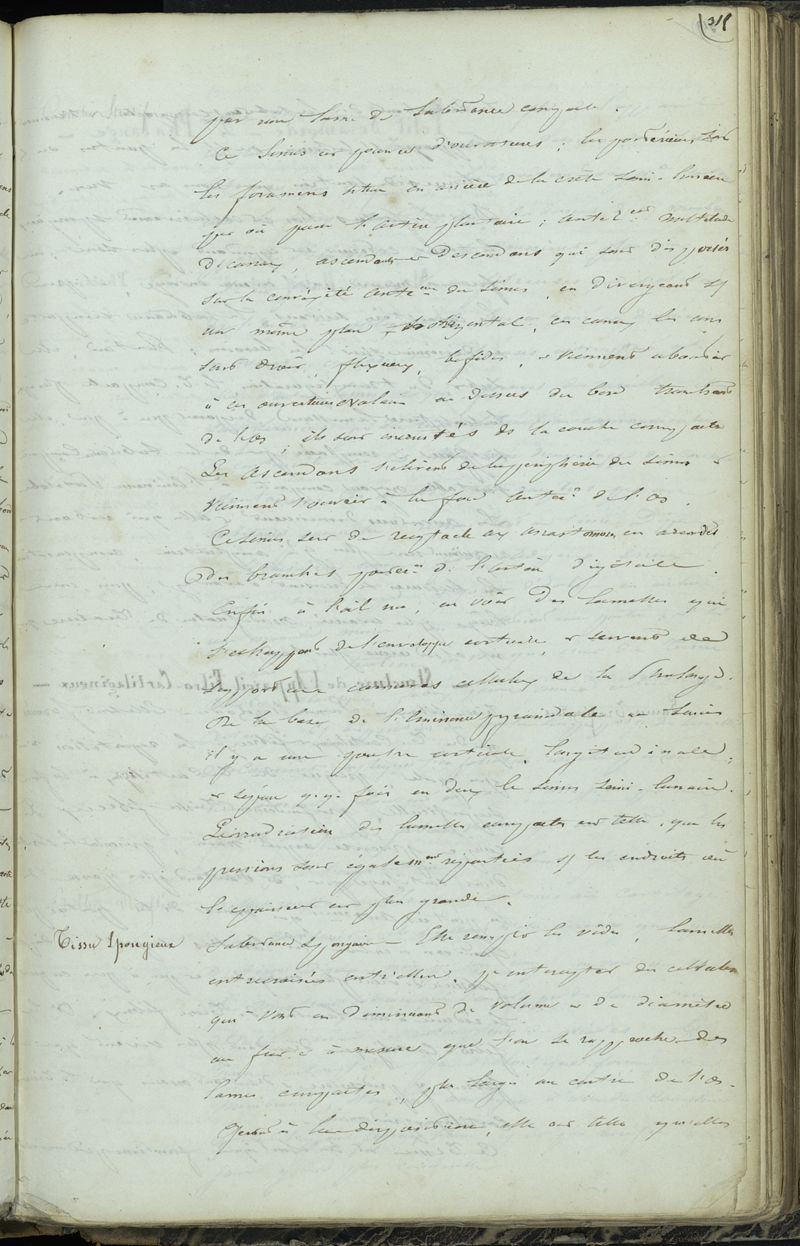 315
par une lame de substance compacte.
Ce sinus est percé d'ouvertures ; les postérieures sont
les foramens situés en arrière de la crête semi-lunaire
par où passe l'artère plantaire ; antér.res multitude
de canaux, ascendants et descendants qui sont disposés
sur la convexité antér.re du sinus, en divergeant sur
un même plan horizontal, ces canaux les uns
sont droits, flexueux, bifides, et viennent aboutir
à ces ouvertures ovalaires au dessus du bord tranchant
de l'os, ils sont incrustés ds la couche compacte
Les ascendants s'élèvent de la périphérie du sinus et
viennent s'ouvrir à la face antér.re de l'os.
Ce sinus sert de réceptacle aux anastomoses en arcades
des branches postér.res de l'artère digitale.
Enfin à l'œil nu, on voit des lamelles qui
s'échappent de l'enveloppe corticale, et servent de
support aux cellules de la Phalange.
De la base de l'Eminence pyramidale au sinus
il y a une poutre corticale, longitudinale,
et sépare q.q. fois en deux le sinus semi-lunaire.
La radiation des lamelles compactes est telle, que les
pressions sont également réparties sur les endroits où
l'épaisseur est plus grande.
Tissu Spongieux
Substance Spongieuse Elle remplit les vides, lamelles
entrecroisées entr'elles, pr intercepter des cellules
qui vont en diminuant de volume et de diamètre
au fur et à mesure que l'on se rapproche des
lames compactes, plus larges au centre de l'os.
Quant à leur disposition, elle est telle qu'elles